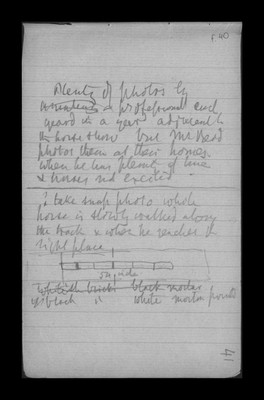 F 40
Plenty of photos by
& professional each
year in a year adjacent to
the horse show but Mr Read
photos them at their homes.
when he has plenty of time
& horses not excited
I take snap photo while
horse is slowly walked along
the track & when he reaches a
right place
5ft wide
black mortar
black " white mortar points
41